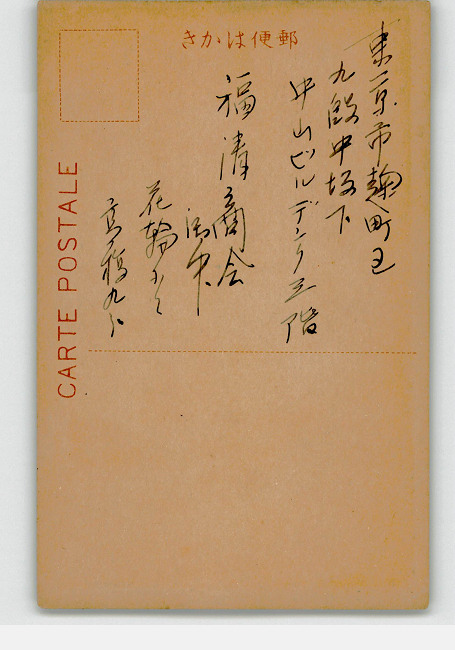 きかは便郵
東京市麹町区
九段中坂下
中山ビルデング三階
福清商会
御中
花輪にて
高橋九
CARTE POSTALE